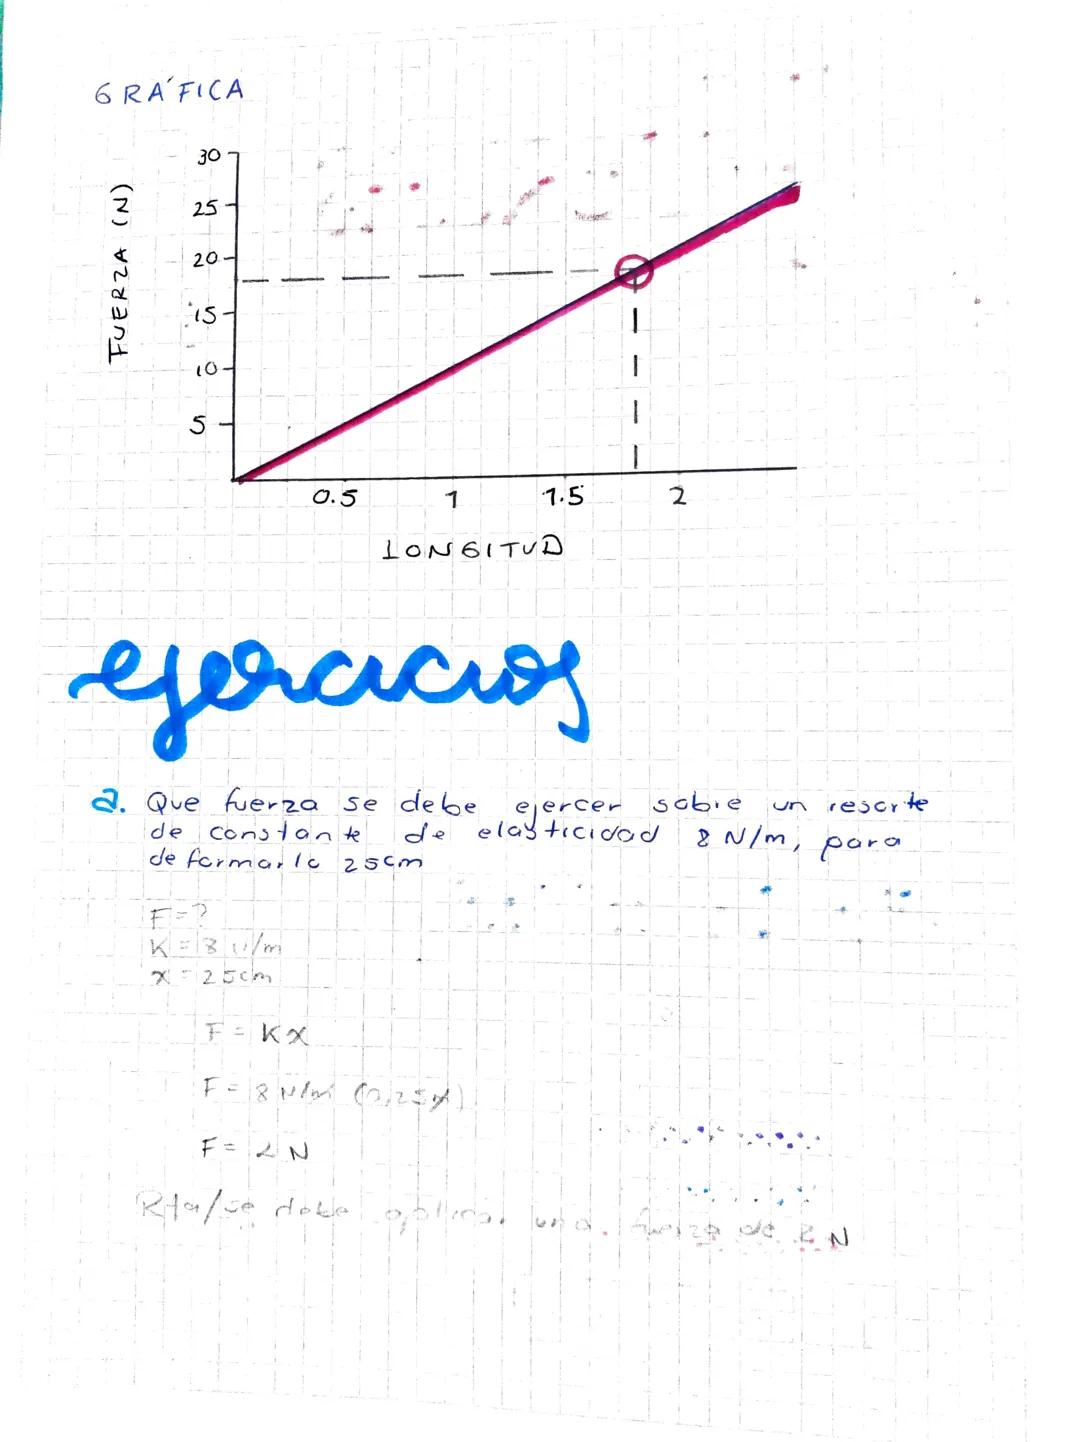 GRÁFICA
FUERZA (N)
30
25
20
15
10
5
0.5 1 1.5 2
LONGITUD
ejercicios
a. Que fuerza se debe ejercer sobre un resorte
de constante de elasticidad 8 N/m, para
deformarlo 25cm
F=?
K=8 N/m
x=25cm
F=Kx
F=8 N/m (0,25x)
F=2N
Rta/se debe aplicar una fuerza de 2 N